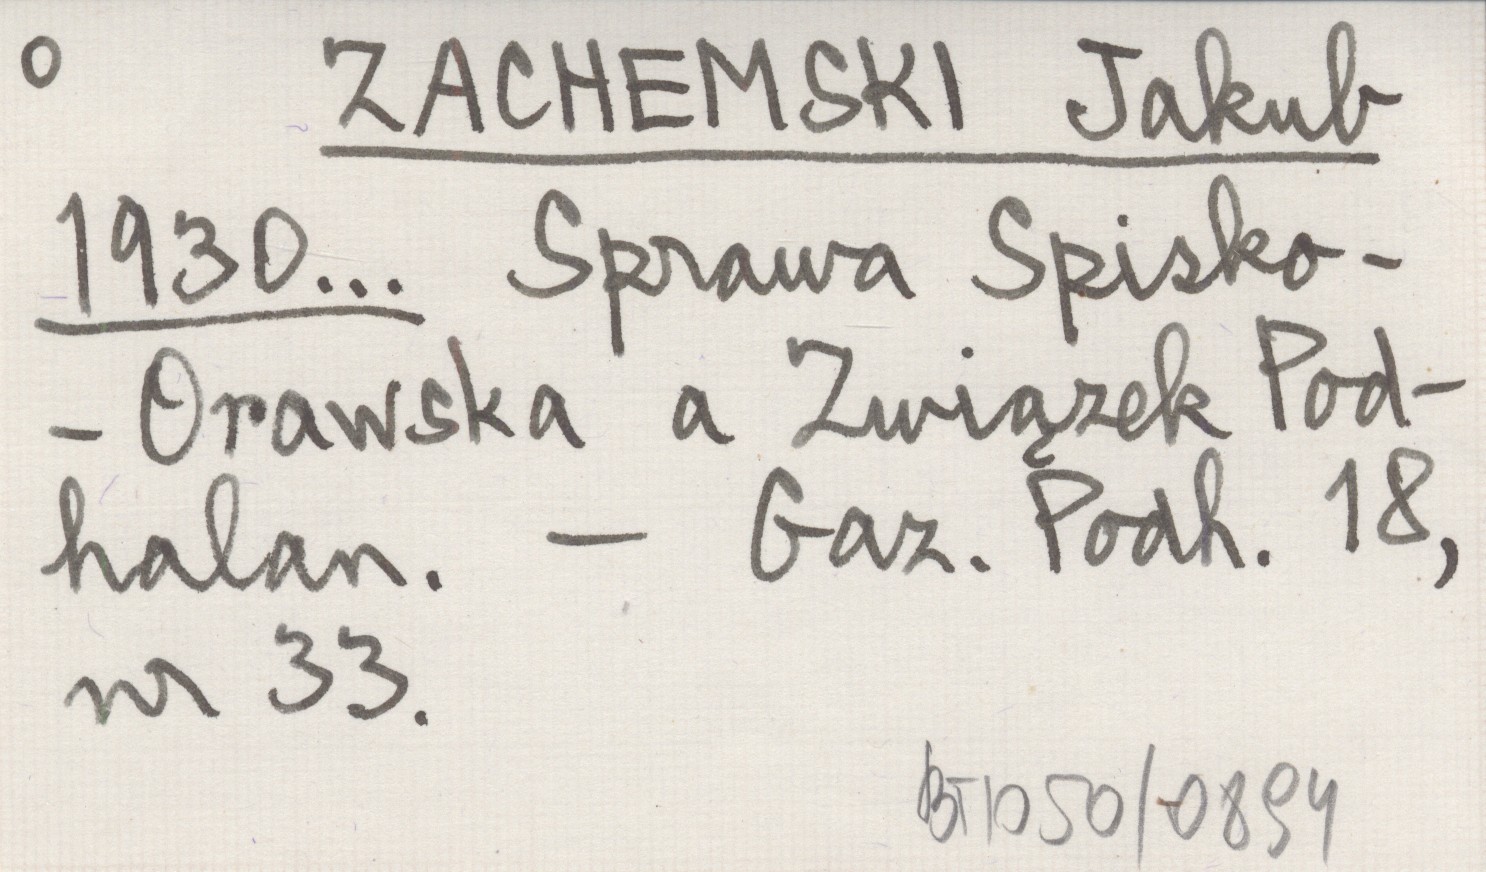 o ZACHEMSKI Jakub
1930... Sprawa Spisko-
- Orawska a Związek Pod-
halan. — Gaz. Podh. 18,
nr 33.
BT1050/0894